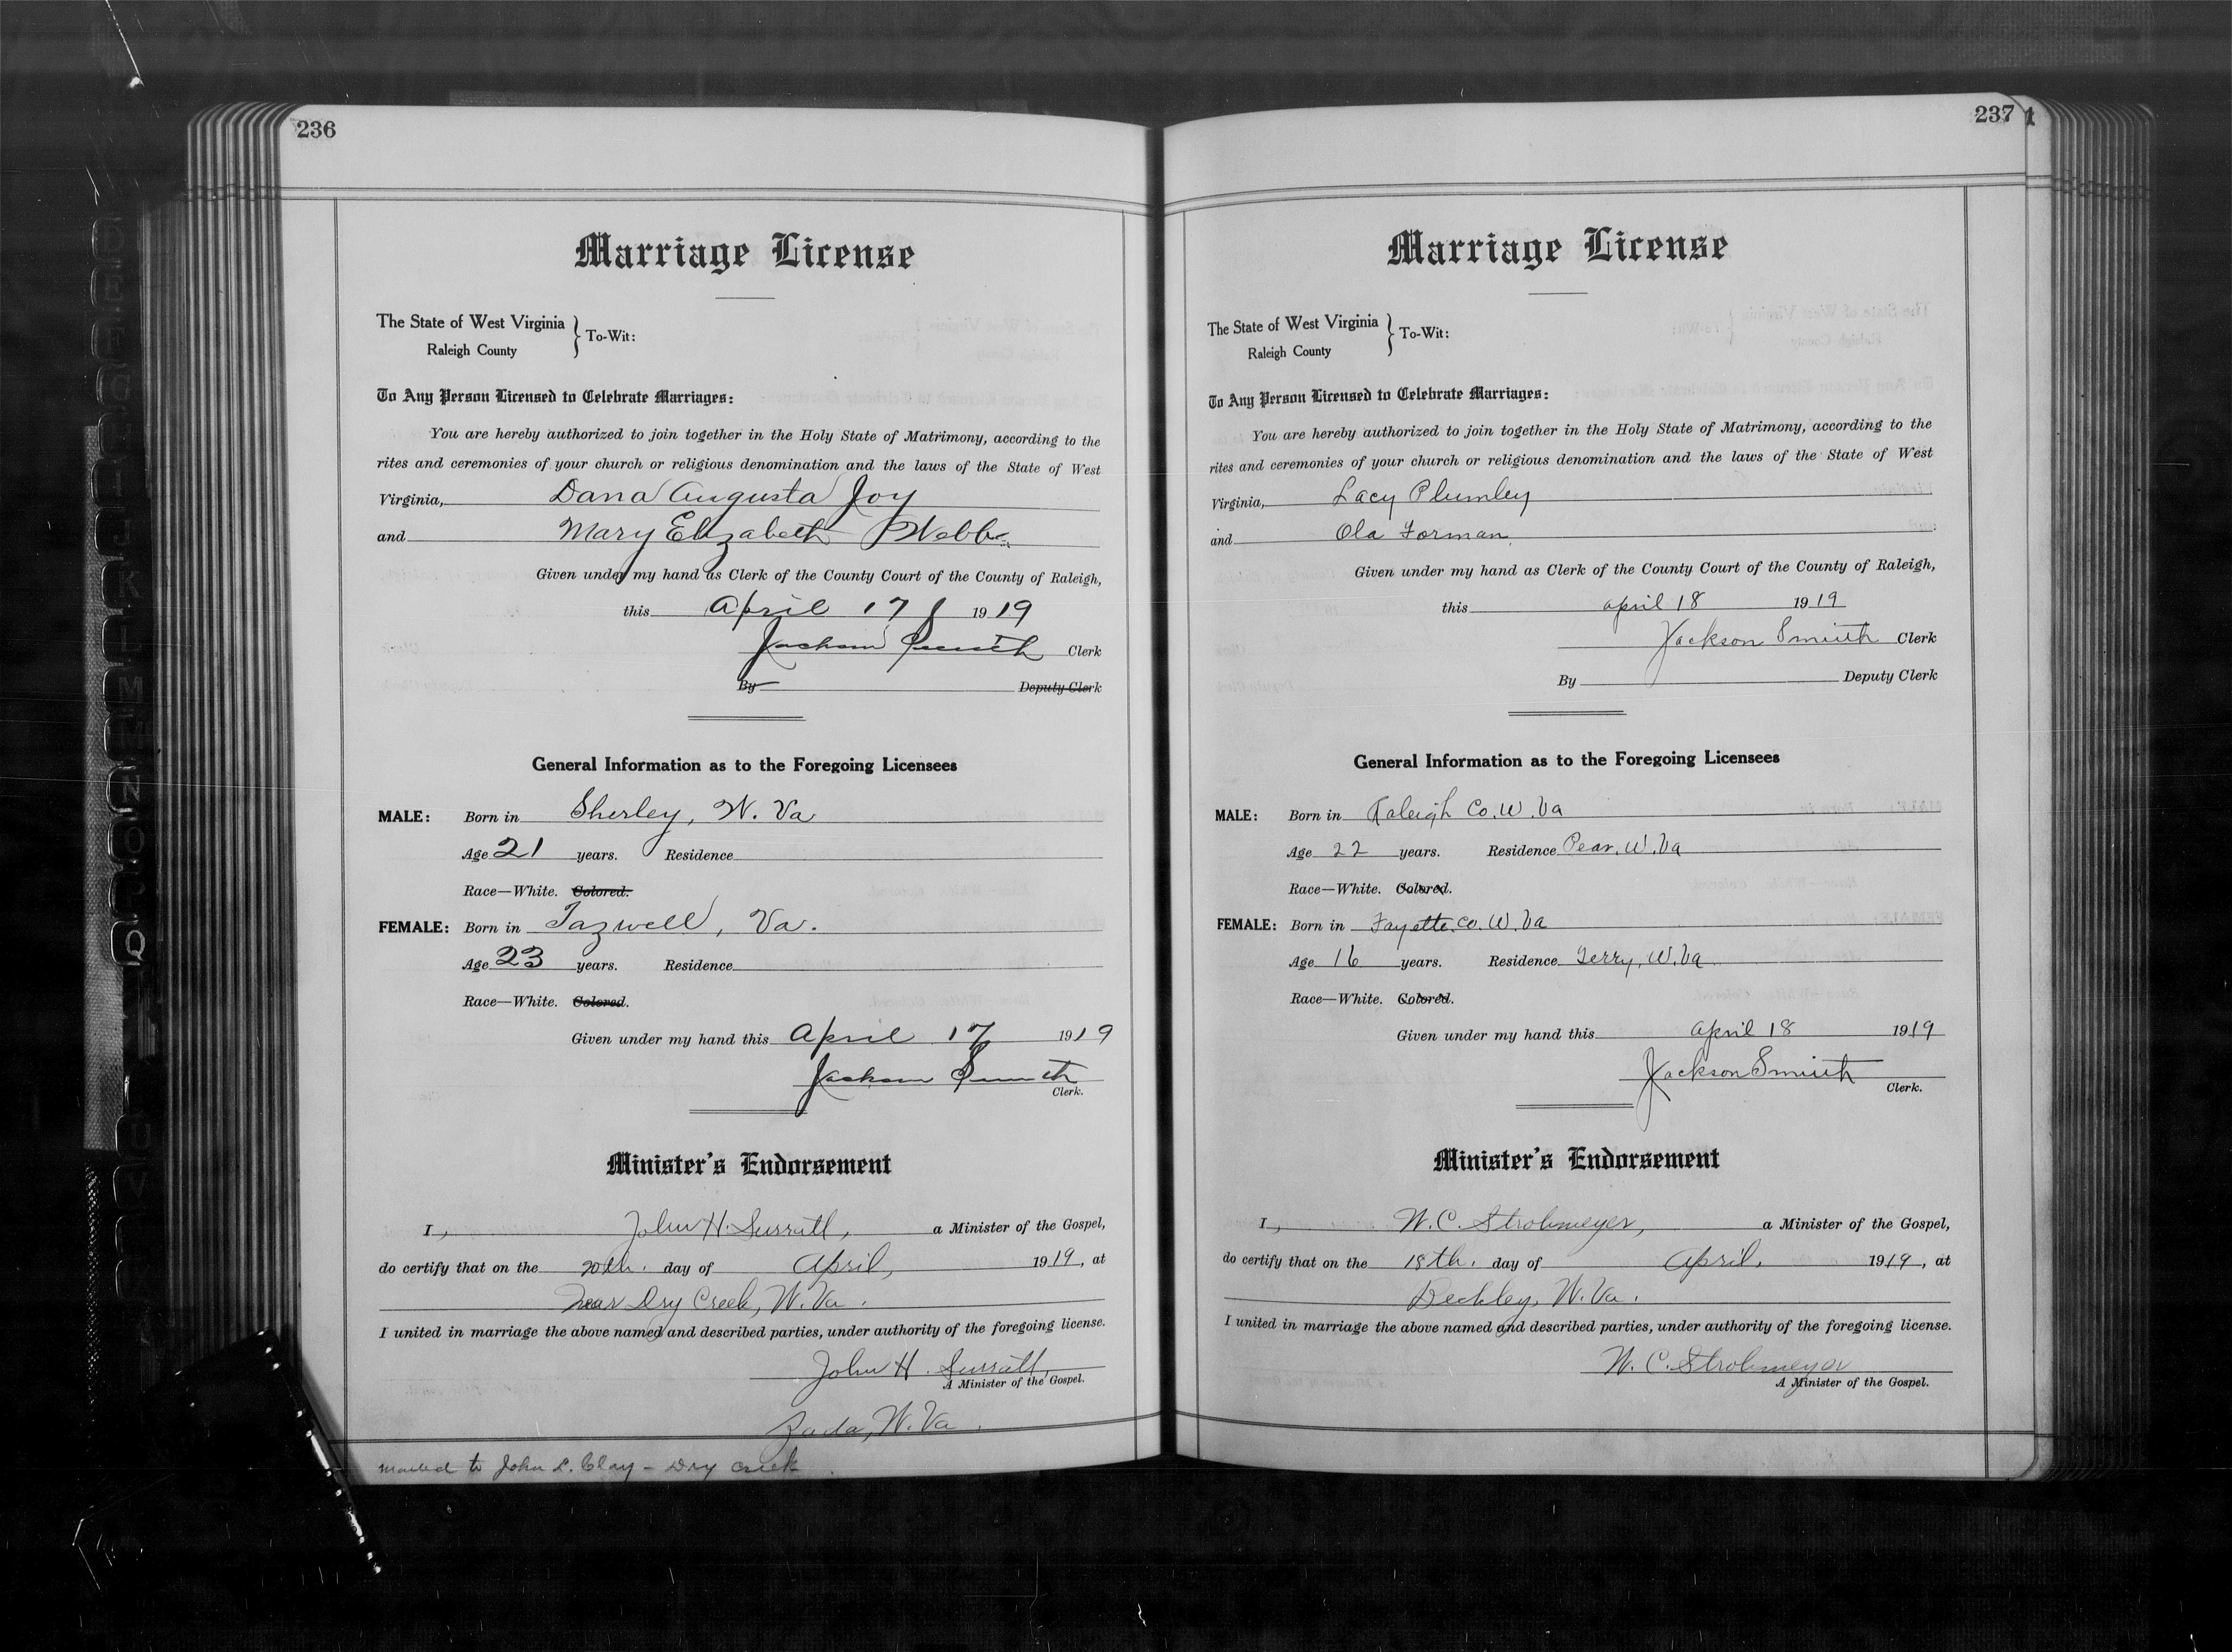 236
Marriage License
The State of West Virginia } To-Wit:
Raleigh County
To Any Person Licensed to Celebrate Marriages:
You are hereby authorized to join together in the Holy State of Matrimony, according to the
rites and ceremonies of your church or religious denomination and the laws of the State of West
Virginia, Dana Augusta Joy
and Mary Elizabeth Webb
Given under my hand as Clerk of the County Court of the County of Raleigh,
this April 17 1919
Jackson Smith Clerk
By Deputy Clerk
General Information as to the Foregoing Licensees
MALE: Born in Sherley, W. Va
Age 21 years. Residence
Race—White. Colored.
FEMALE: Born in Tazwell, Va.
Age 23 years. Residence
Race—White. Colored.
Given under my hand this April 17 1919
Jackson Smith
Clerk.
Minister's Endorsement
I, John H. Surratt, a Minister of the Gospel,
do certify that on the 20th. day of April, 1919, at
Near Dry Creek, W. Va.
I united in marriage the above named and described parties, under authority of the foregoing license.
John H. Surratt,
A Minister of the Gospel.
W. Va.
Mailed to John L. Clay - Dry Creek
237
Marriage License
The State of West Virginia } To-Wit:
Raleigh County
To Any Person Licensed to Celebrate Marriages:
You are hereby authorized to join together in the Holy State of Matrimony, according to the
rites and ceremonies of your church or religious denomination and the laws of the State of West
Virginia, Lacy Plumley
and Ola Forman
Given under my hand as Clerk of the County Court of the County of Raleigh,
this april 18 1919
Jackson Smith Clerk
By Deputy Clerk
General Information as to the Foregoing Licensees
MALE: Born in Raleigh Co. W. Va
Age 22 years. Residence Pear, W. Va
Race—White. Colored.
FEMALE: Born in Fayette Co. W. Va
Age 16 years. Residence Terry, W. Va
Race—White. Colored.
Given under my hand this april 18 1919
Jackson Smith
Clerk.
Minister's Endorsement
I, W. C. Strohmeyer, a Minister of the Gospel,
do certify that on the 18th. day of April. 1919, at
Beckley, W. Va.
I united in marriage the above named and described parties, under authority of the foregoing license.
W. C. Strohmeyer
A Minister of the Gospel.